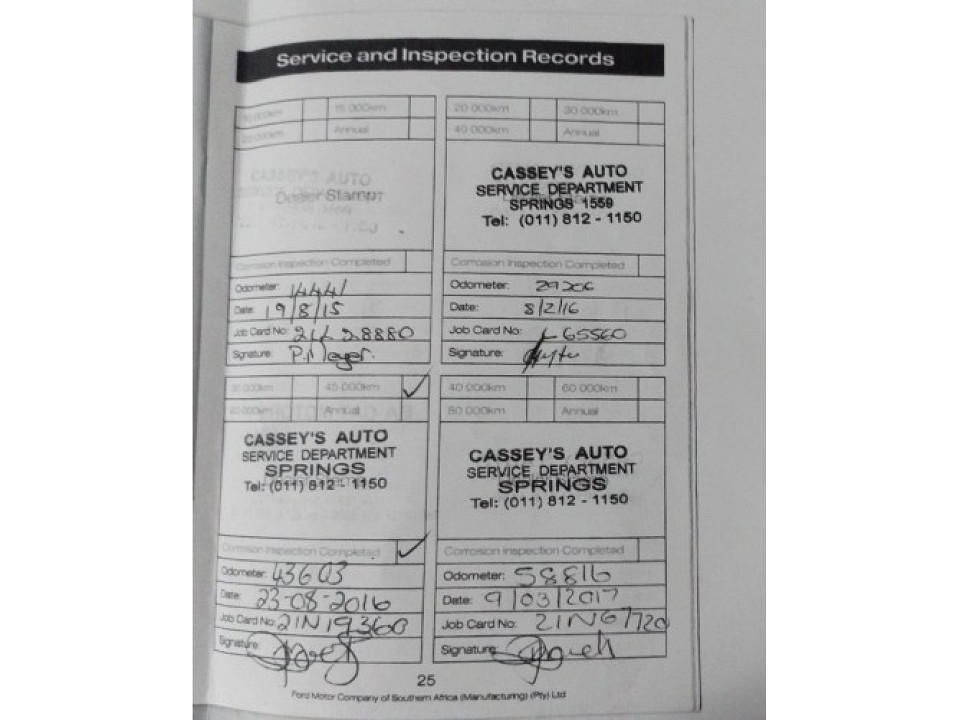 Service and Inspection Records
15 000km
Annual
CASSEY'S AUTO
Dealer Stamp
Corrosion Inspection Completed
Odometer: 14441
Date: 19/8/15
Job Card No: 28880
Signature: P. Meyer.
20 000km 30 000km
40 000km Annual
CASSEY'S AUTO
SERVICE DEPARTMENT
SPRINGS 1559
Tel: (011) 812 - 1150
Corrosion Inspection Completed
Odometer: 29206
Date: 8/2/16
Job Card No: L65560
Signature:
45 000km ✓
Annual
CASSEY'S AUTO
SERVICE DEPARTMENT
SPRINGS
Tel: (011) 812 - 1150
Corrosion Inspection Completed ✓
Odometer: 43603
Date: 23-08-2016
Job Card No: 21N19360
Signature:
40 000km 60 000km
80 000km Annual
CASSEY'S AUTO
SERVICE DEPARTMENT
SPRINGS
Tel: (011) 812 - 1150
Corrosion Inspection Completed
Odometer: 58816
Date: 9/03/2017
Job Card No: 21N67720
Signature:
25
Ford Motor Company of Southern Africa (Manufacturing) (Pty) Ltd